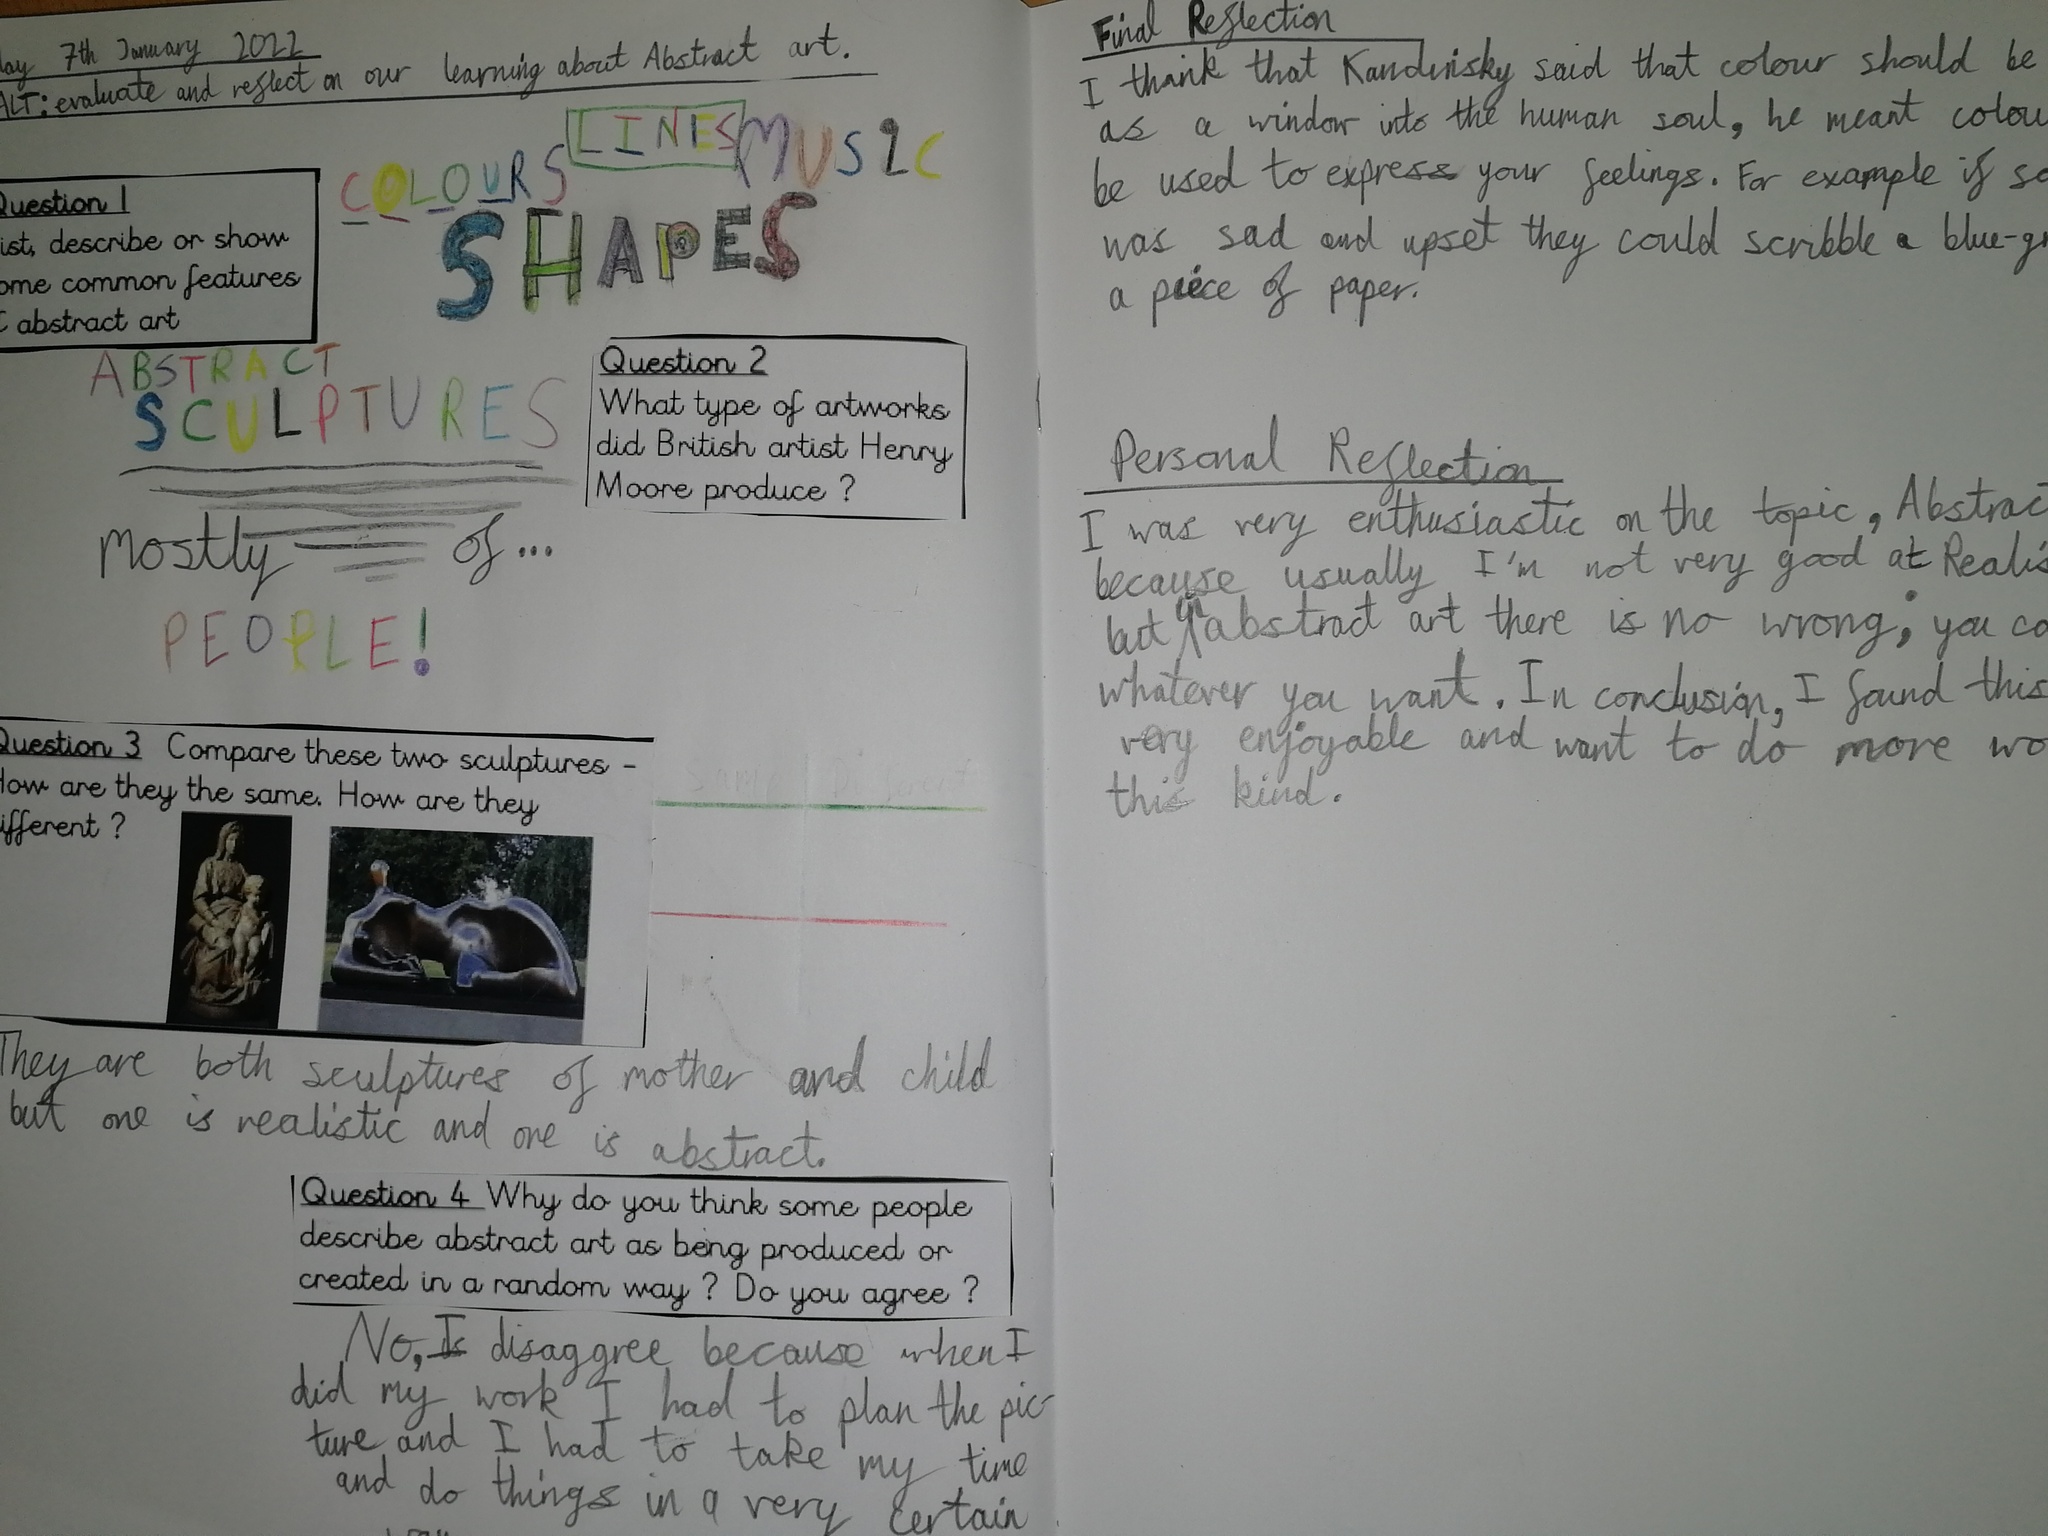 day 7th January 2022
ALT: evaluate and reflect on our learning about Abstract art.
COLOURS LINES MUSIC
SHAPES
Question 1
ist, describe or show
ome common features
f abstract art
ABSTRACT
SCULPTURES
mostly of...
PEOPLE!
Question 2
What type of artworks
did British artist Henry
Moore produce ?
Question 3 Compare these two sculptures -
How are they the same. How are they
ifferent ?
Same Different
They are both sculptures of mother and child
but one is realistic and one is abstract.
Question 4 Why do you think some people
describe abstract art as being produced or
created in a random way ? Do you agree ?
No, I disaggree because when I
did my work I had to plan the pic-
ture and I had to take my time
and do things in a very certain
Final Reflection
I thank that Kandinsky said that colour should be
as a window into the human soul, he meant colou
be used to express your feelings. For example if so
was sad and upset they could scribble a blue-gr
a piece of paper.
Personal Reflection
I was very enthusiastic on the topic, Abstrac
because usually I'm not very good at Realis
but in abstract art there is no wrong; you ca
whatever you want. In conclusion, I found this
very enjoyable and want to do more wo
this kind.